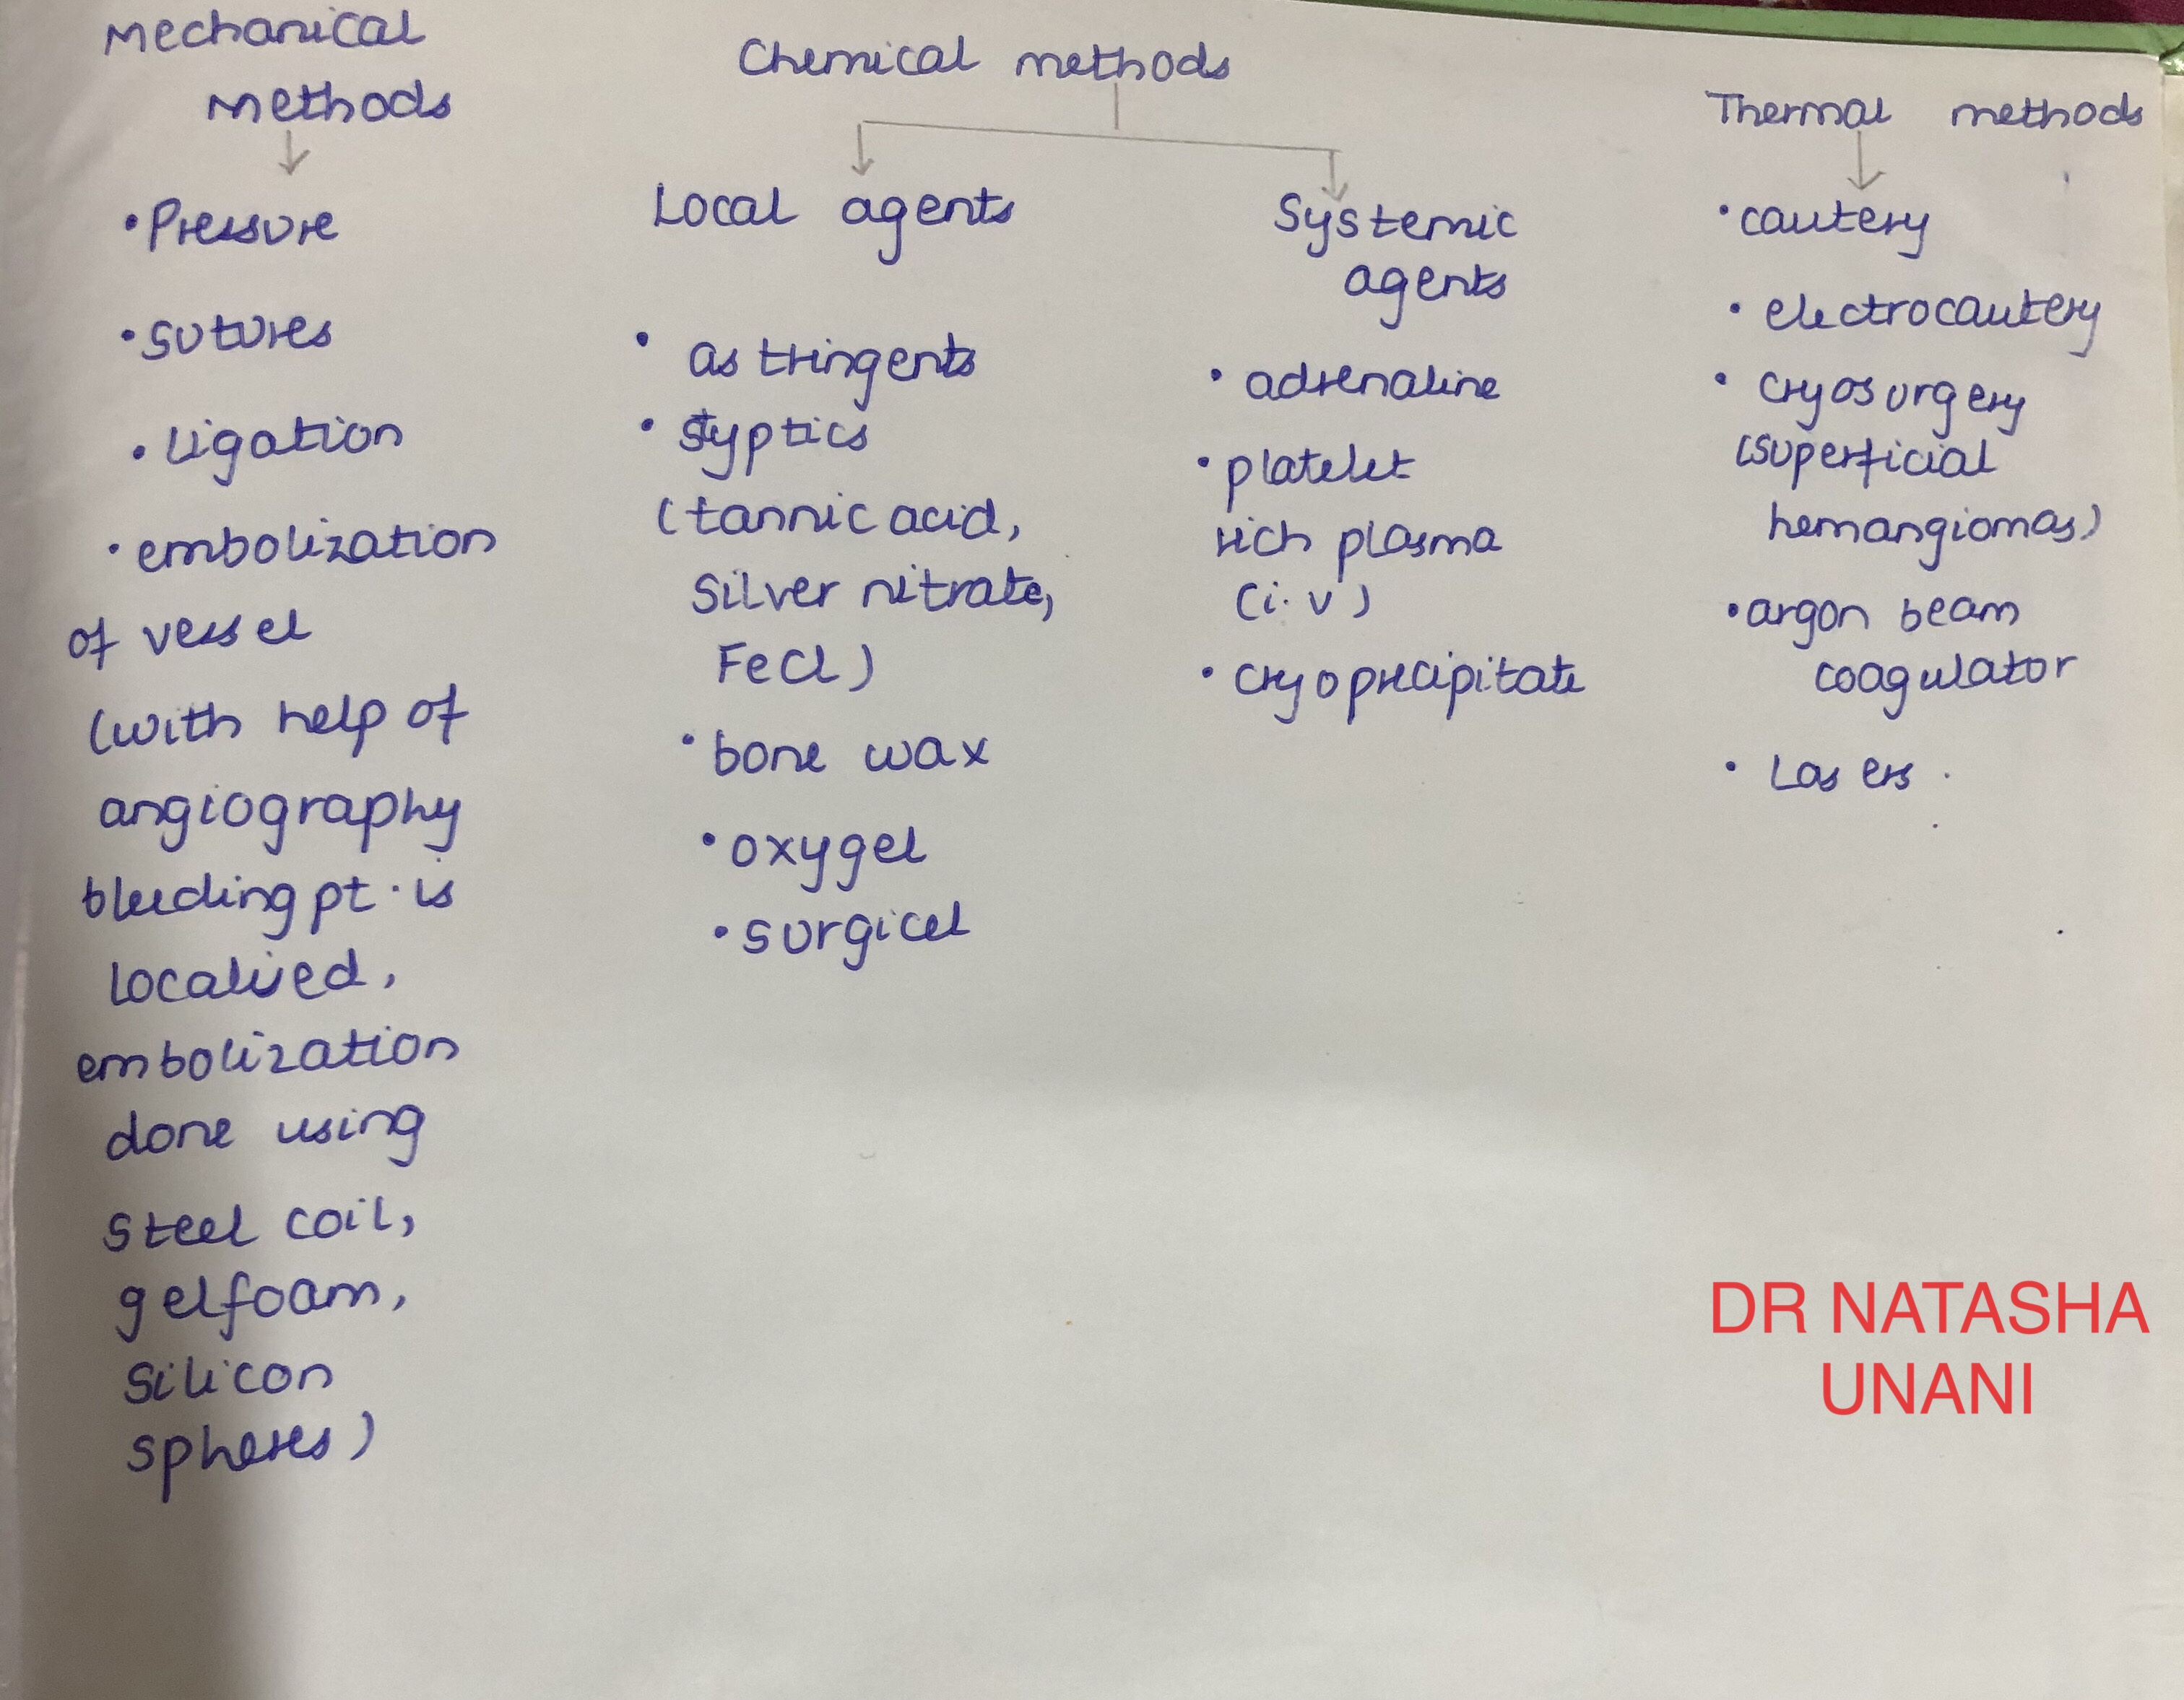 Mechanical
Methods
• Pressure
• sutures
• Ligation
• embolization
of vessel
(with help of
angiography
bleeding pt. is
localised,
embolization
done using
steel coil,
gelfoam,
silicon
spheres)
Chemical methods
Local agents
• astringents
• styptics
(tannic acid,
silver nitrate,
FeCl)
• bone wax
• oxygel
• surgicel
Systemic
agents
• adrenaline
• platelet
rich plasma
(i.v)
• cryoprecipitate
Thermal methods
• cautery
• electrocautery
• cryosurgery
(superficial
hemangiomas)
• argon beam
coagulator
• Lasers.
DR NATASHA
UNANI